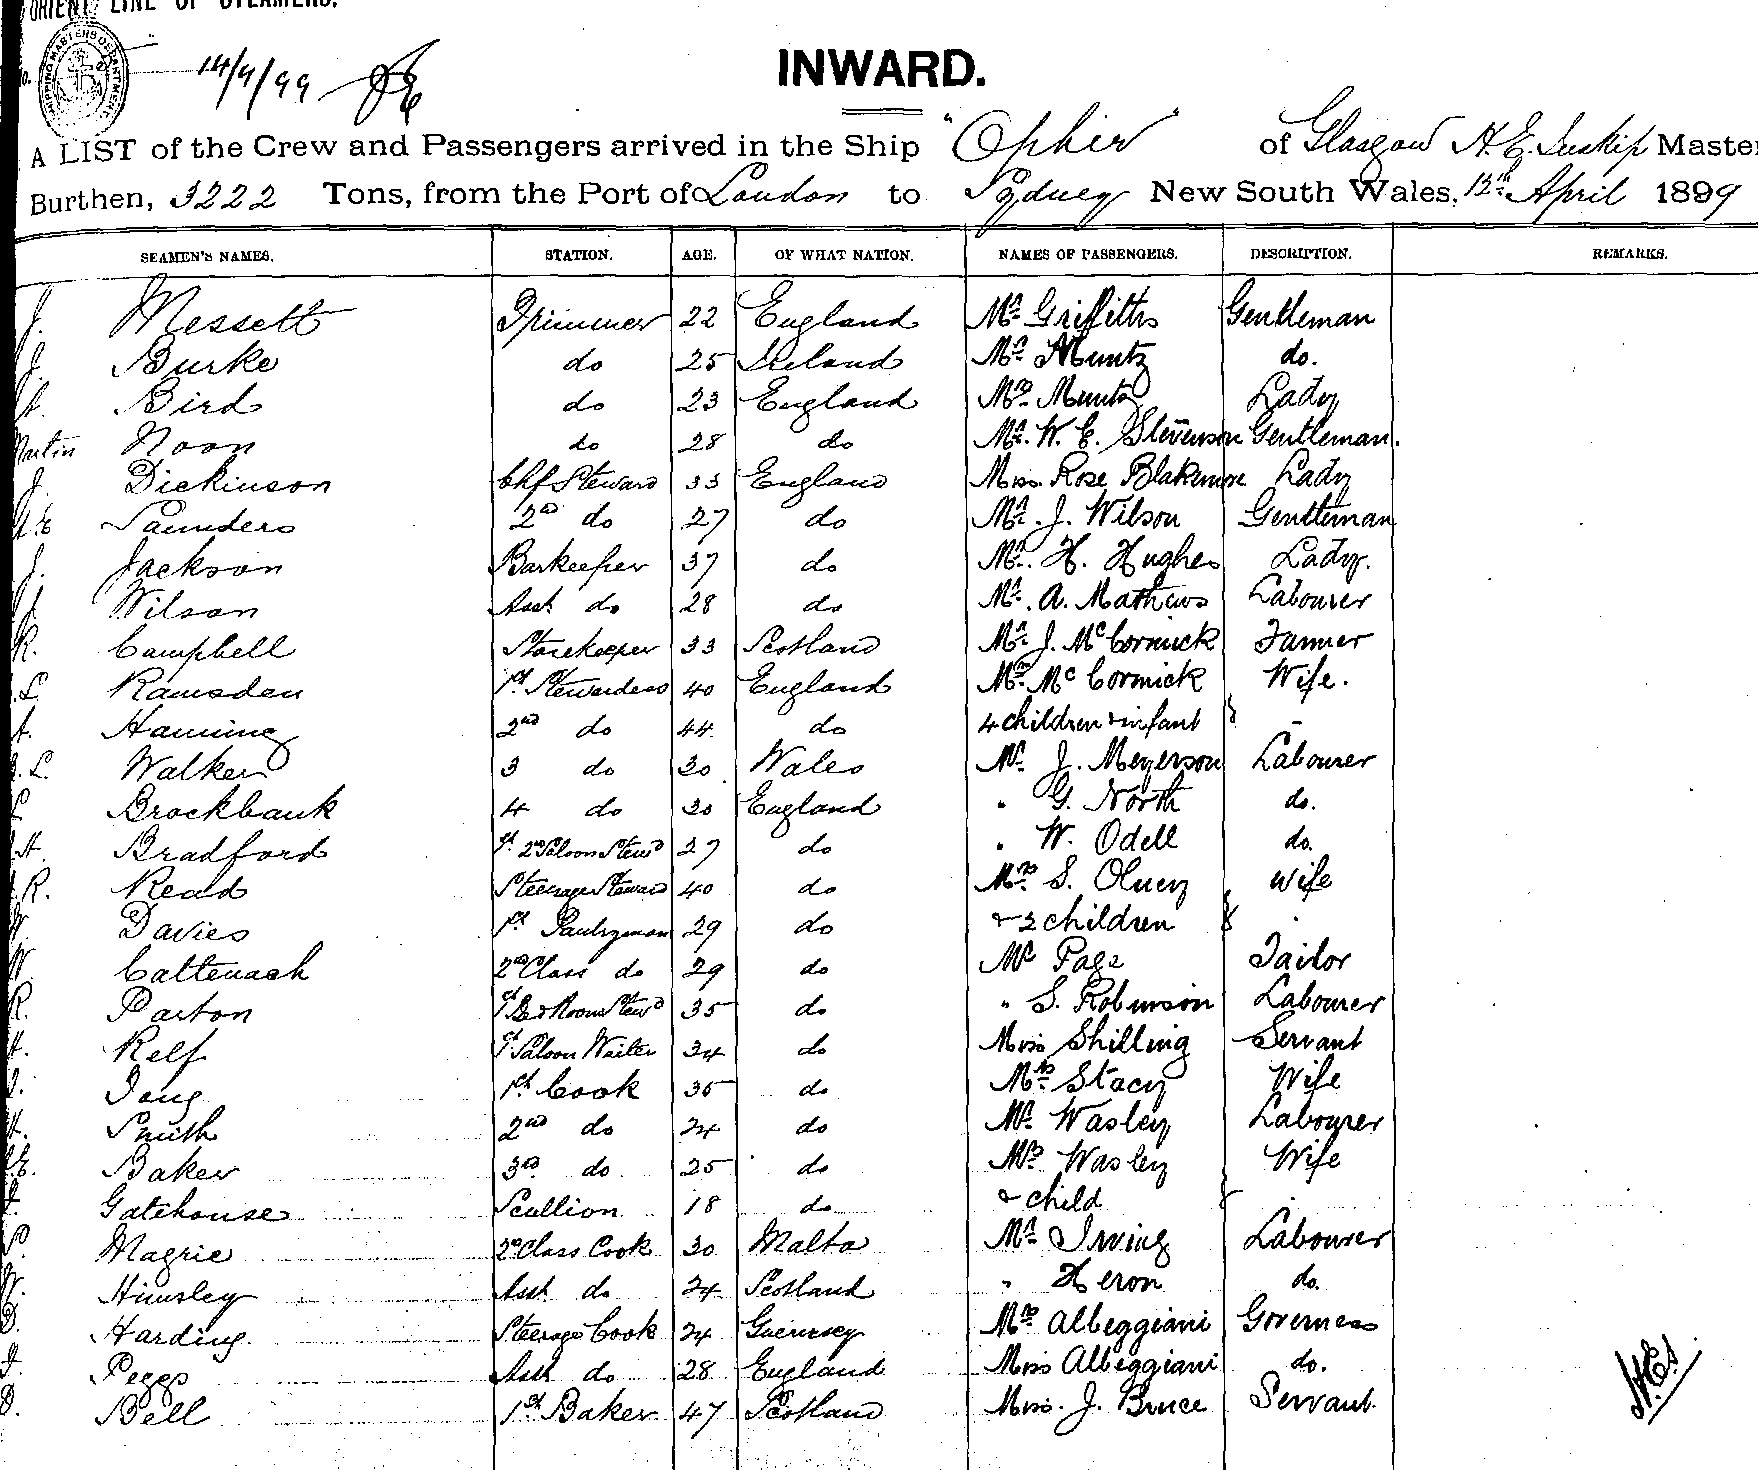 ORIENT LINE OF STEAMERS.
14/4/99
INWARD.
A LIST of the Crew and Passengers arrived in the Ship "Ophir" of Glasgow H. E. Inskip Master
Burthen, 3222 Tons, from the Port of London to Sydney New South Wales, 12th April 1899
SEAMEN'S NAMES. STATION. AGE. OF WHAT NATION. NAMES OF PASSENGERS. DESCRIPTION. REMARKS.
J. Messett Trimmer 22 England Mr Griffiths Gentleman
J. Burke do 25 Ireland Mr Muntz do.
Bird do 23 England Mrs Muntz Lady
Martin Noon do 28 do Mr. W. E. Stevenson Gentleman.
J. Dickinson Chf Steward 33 England Miss. Rose Blakemore Lady
Saunders 2nd do 27 do Mr. J. Wilson Gentleman
J. Jackson Barkeeper 37 do H. Hughes Lady.
Wilson Asst do 28 do Mr. A. Mathews Labourer
R. Campbell Storekeeper 33 Scotland Mr J. McCormick Farmer
L. Ramsden 1st Stewardess 40 England Mrs McCormick Wife.
Hanning 2nd do 44 do 4 children & infant -
L. Walker 3 do 30 Wales Mr J. Meyerson Labourer
Brockbank 4 do 30 England " G. North do.
H. Bradford 1st 2nd Saloon Stewd 27 do " W. Odell do.
R. Read Steerage Steward 40 do Mrs S. Olney Wife
W. Davies 1st Pantryman 29 do & 2 children
W. Cattenach 2nd Class do 29 do Mr Page Tailor
R. Parton 1st Bed Room Stewd 35 do " S. Robinson Labourer
Relf 1st Saloon Waiter 34 do Miss Shilling Servant
Tong 1st Cook 35 do Mrs Stacy Wife
Smith 2nd do 24 do Mr Wasley Labourer
Baker 3rd do 25 do Mrs Wasley Wife
Gatehouse Scullion 18 do & child
Magrie 2nd Class Cook 30 Malta Mr Irving Labourer
Himsley Asst do 24 Scotland " Heron do.
Harding Steerage Cook 24 Guernsey Mrs Albeggiani Governess
Peggs Asst do 28 England Miss Albeggiani do.
Bell 1st Baker 47 Scotland Miss. J. Bruce Servant.